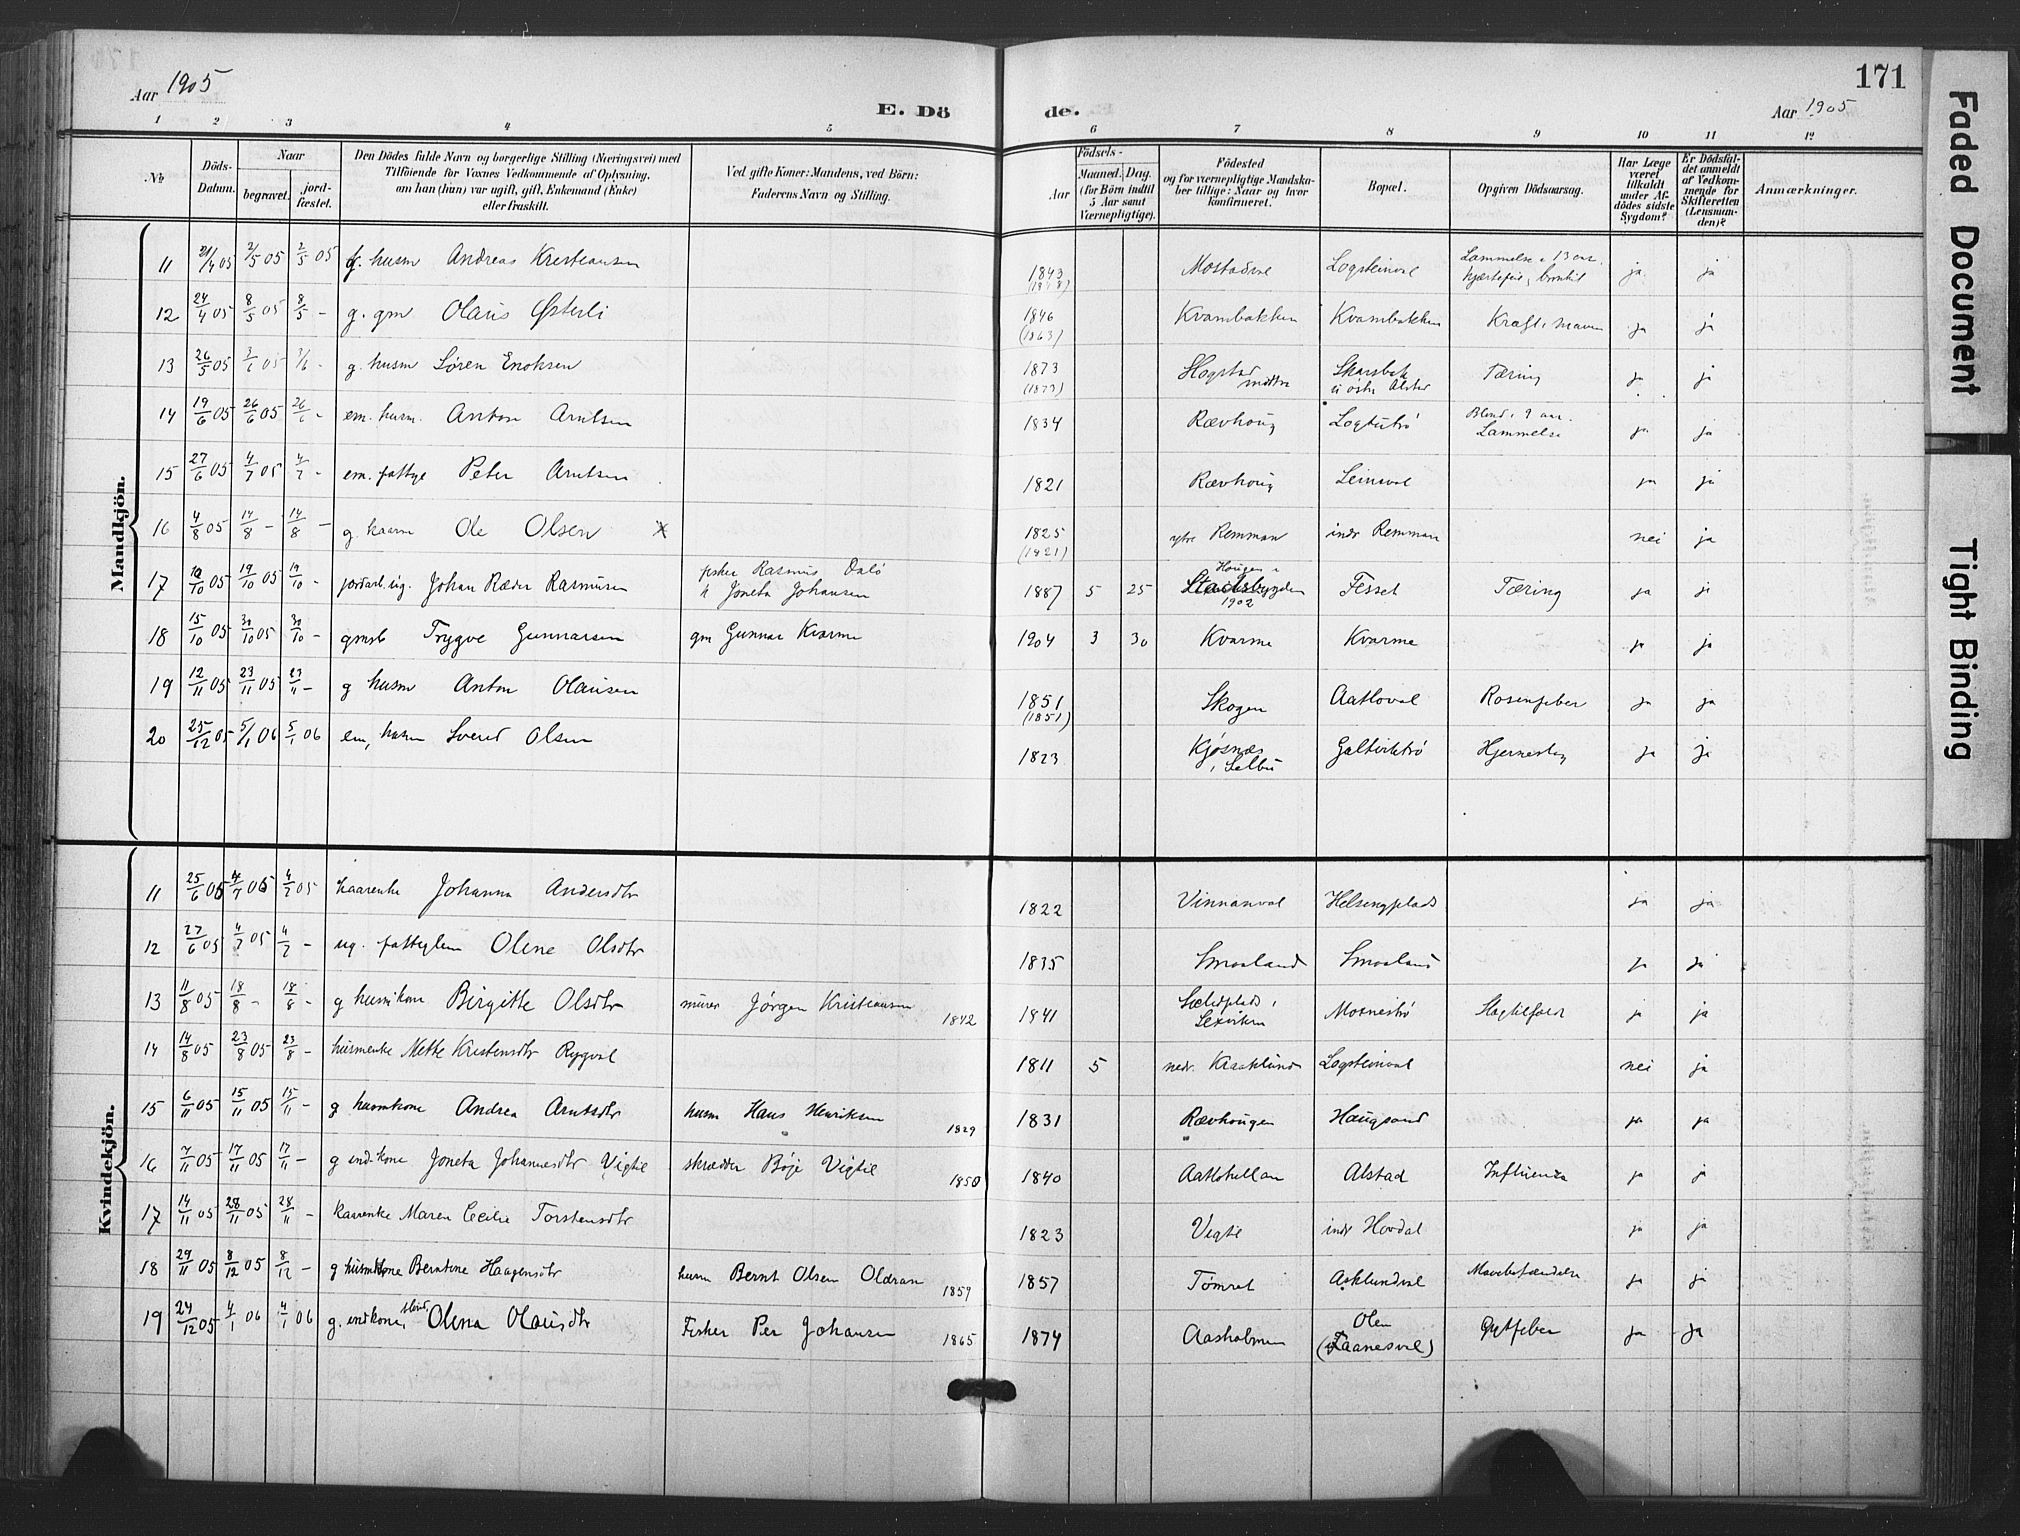 Aar 1905
E. Dö
de.
171
Aar 1905
1 2 3 4 5 6 7 8 9 10 11 12
No
Döds-Datum.
Naar
begravet.
jord-fæstet.
Den Dödes fulde Navn og borgerlige Stilling (Næringsvei) med
Tilföiende for Voxnes Vedkommende af Oplysning,
om han (hun) var ugift, gift, Enkemand (Enke)
eller fraskilt.
Ved gifte Koner: Mandens, ved Börn:
Faderens Navn og Stilling.
Födsels-
Aar
Maaned. Dag.
(for Börn indtil
5 Aar samt
Værnepligtige).
Födested
og for værnepligtige Mandska-
ber tillige: Naar og hvor
konfirmeret.
Bopæl.
Opgiven Dödsaarsag.
Har Læge
været
tilkaldt
under Af-
dödes sidste
Sygdom?
Er Dödsfal-
det anmeldt
af Vedkom-
mende for
Skifteretten
(Lensman-
den)?
Anmærkninger.
Mandkjön.
11 21/4 05 2/5 05 2/5 05 g. husm Andreas Kristiansen 1843 Mostadval Logsteinval Lammelse i 13 aar, hjertefeil, bronkit ja ja
12 24/4 05 8/5 05 8/5 - g. gm Olaus Østerli 1846 (1863) Kvambakken Kvambakken Kræft i maven ja ja
13 26/5 05 05 - g. husm Søren Enoksen 1873 (1873) Hogstad midtre Skarsbak i østre Alstad Tæring ja ja
14 19/6 05 26/6 05 26/6 - em. husm. Anton Arntsen 1834 Rævhoug Blind i 9 aar. Lammelse ja ja
15 27/6 05 4/7 05 4/7 - em. fattig Peter Arntsen 1821 Rævhoug Leinsval ja ja
16 4/8 05 14/8 - 14/8 - g. kaarm Ole Olsen x 1825 (1821) ytre Remman indr Remman nei ja
17 10/10 05 19/10 05 19/10 - jordarb. ug. Johan Ræder Rasmusen fisker Rasmus Dalø h Joneta Johansen 1887 5 25 Hougen i Stadsbygden 1902 Fesset Tæring ja ja
18 15/10 05 30/10 05 30/10 - gmsb Trygve Gunnarsen gm Gunnar Kvarme 1904 3 30 Kvarme Kvarme ja ja
19 12/11 05 23/11 05 23/11 - g husm Anton Olausen 1851 (1851) Skogen Aatloval Rosenfeber ja ja
20 25/12 05 5/1 06 5/1 06 em, husm Sverd Olsen 1823 Kjøsnæs i Selbu Galtviktrø Hjerneslag ja ja
Kvindekjön.
11 25/6 05 4/7 05 4/7 05 kaarenke Johanna Andersdtr 1822 Vinnanval Helsingplads ja ja
12 27/6 05 4/7 05 4/7 - ug. fattiglem Olene Olsdtr 1835 Smaaland Smaaland ja ja
13 11/8 05 18/8 - 18/8 - g husmkone Birgitte Olsdtr murer Jørgen Kristiansen 1842 1841 Sæledplads i Lexviken Mosnestrø Slagtilfæld ja ja
14 14/8 05 23/8 05 23/8 - husmenke Mette Kristensdtr Rygval 1811 5 nedr. Kraaklund Logsteinval nei ja
15 6/11 05 15/11 05 15/11 - g husmkone Andrea Arntsdtr husm Hans Henriksen 1829 1831 Rævhougen Haugsand ja ja
16 7/11 05 17/11 05 17/11 - g indkone Joneta Johannesdtr Vigtil skrædder Bøje Vigtil 1850 1840 Aatlohellan Alstad Influenza ja ja
17 14/11 05 28/11 05 28/11 - kaarenke Maren Cecilie Torstensdtr 1823 Vigte indr Hovdal ja ja
18 29/11 05 8/12 05 8/12 - g husmkone Berntine Haagensdtr husm Bernt Olsen Oldran 1859 1857 Tømret Asklundval Mavebetændelse ja ja
19 24/12 05 4/1 06 4/1 06 g. indkone, Olina Olausdtr Fisker Per Johansen 1865 1874 Aasholmen Olen (Faanesval) Gigtfeber ja ja
Faded Document
Tight Binding